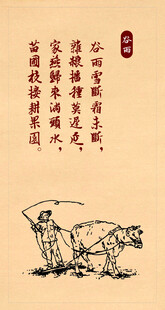 谷雨
谷雨雪斷霜未斷，
雜粮播種莫遲延，
家燕歸來淌頭水，
苗圃枝接耕果園。